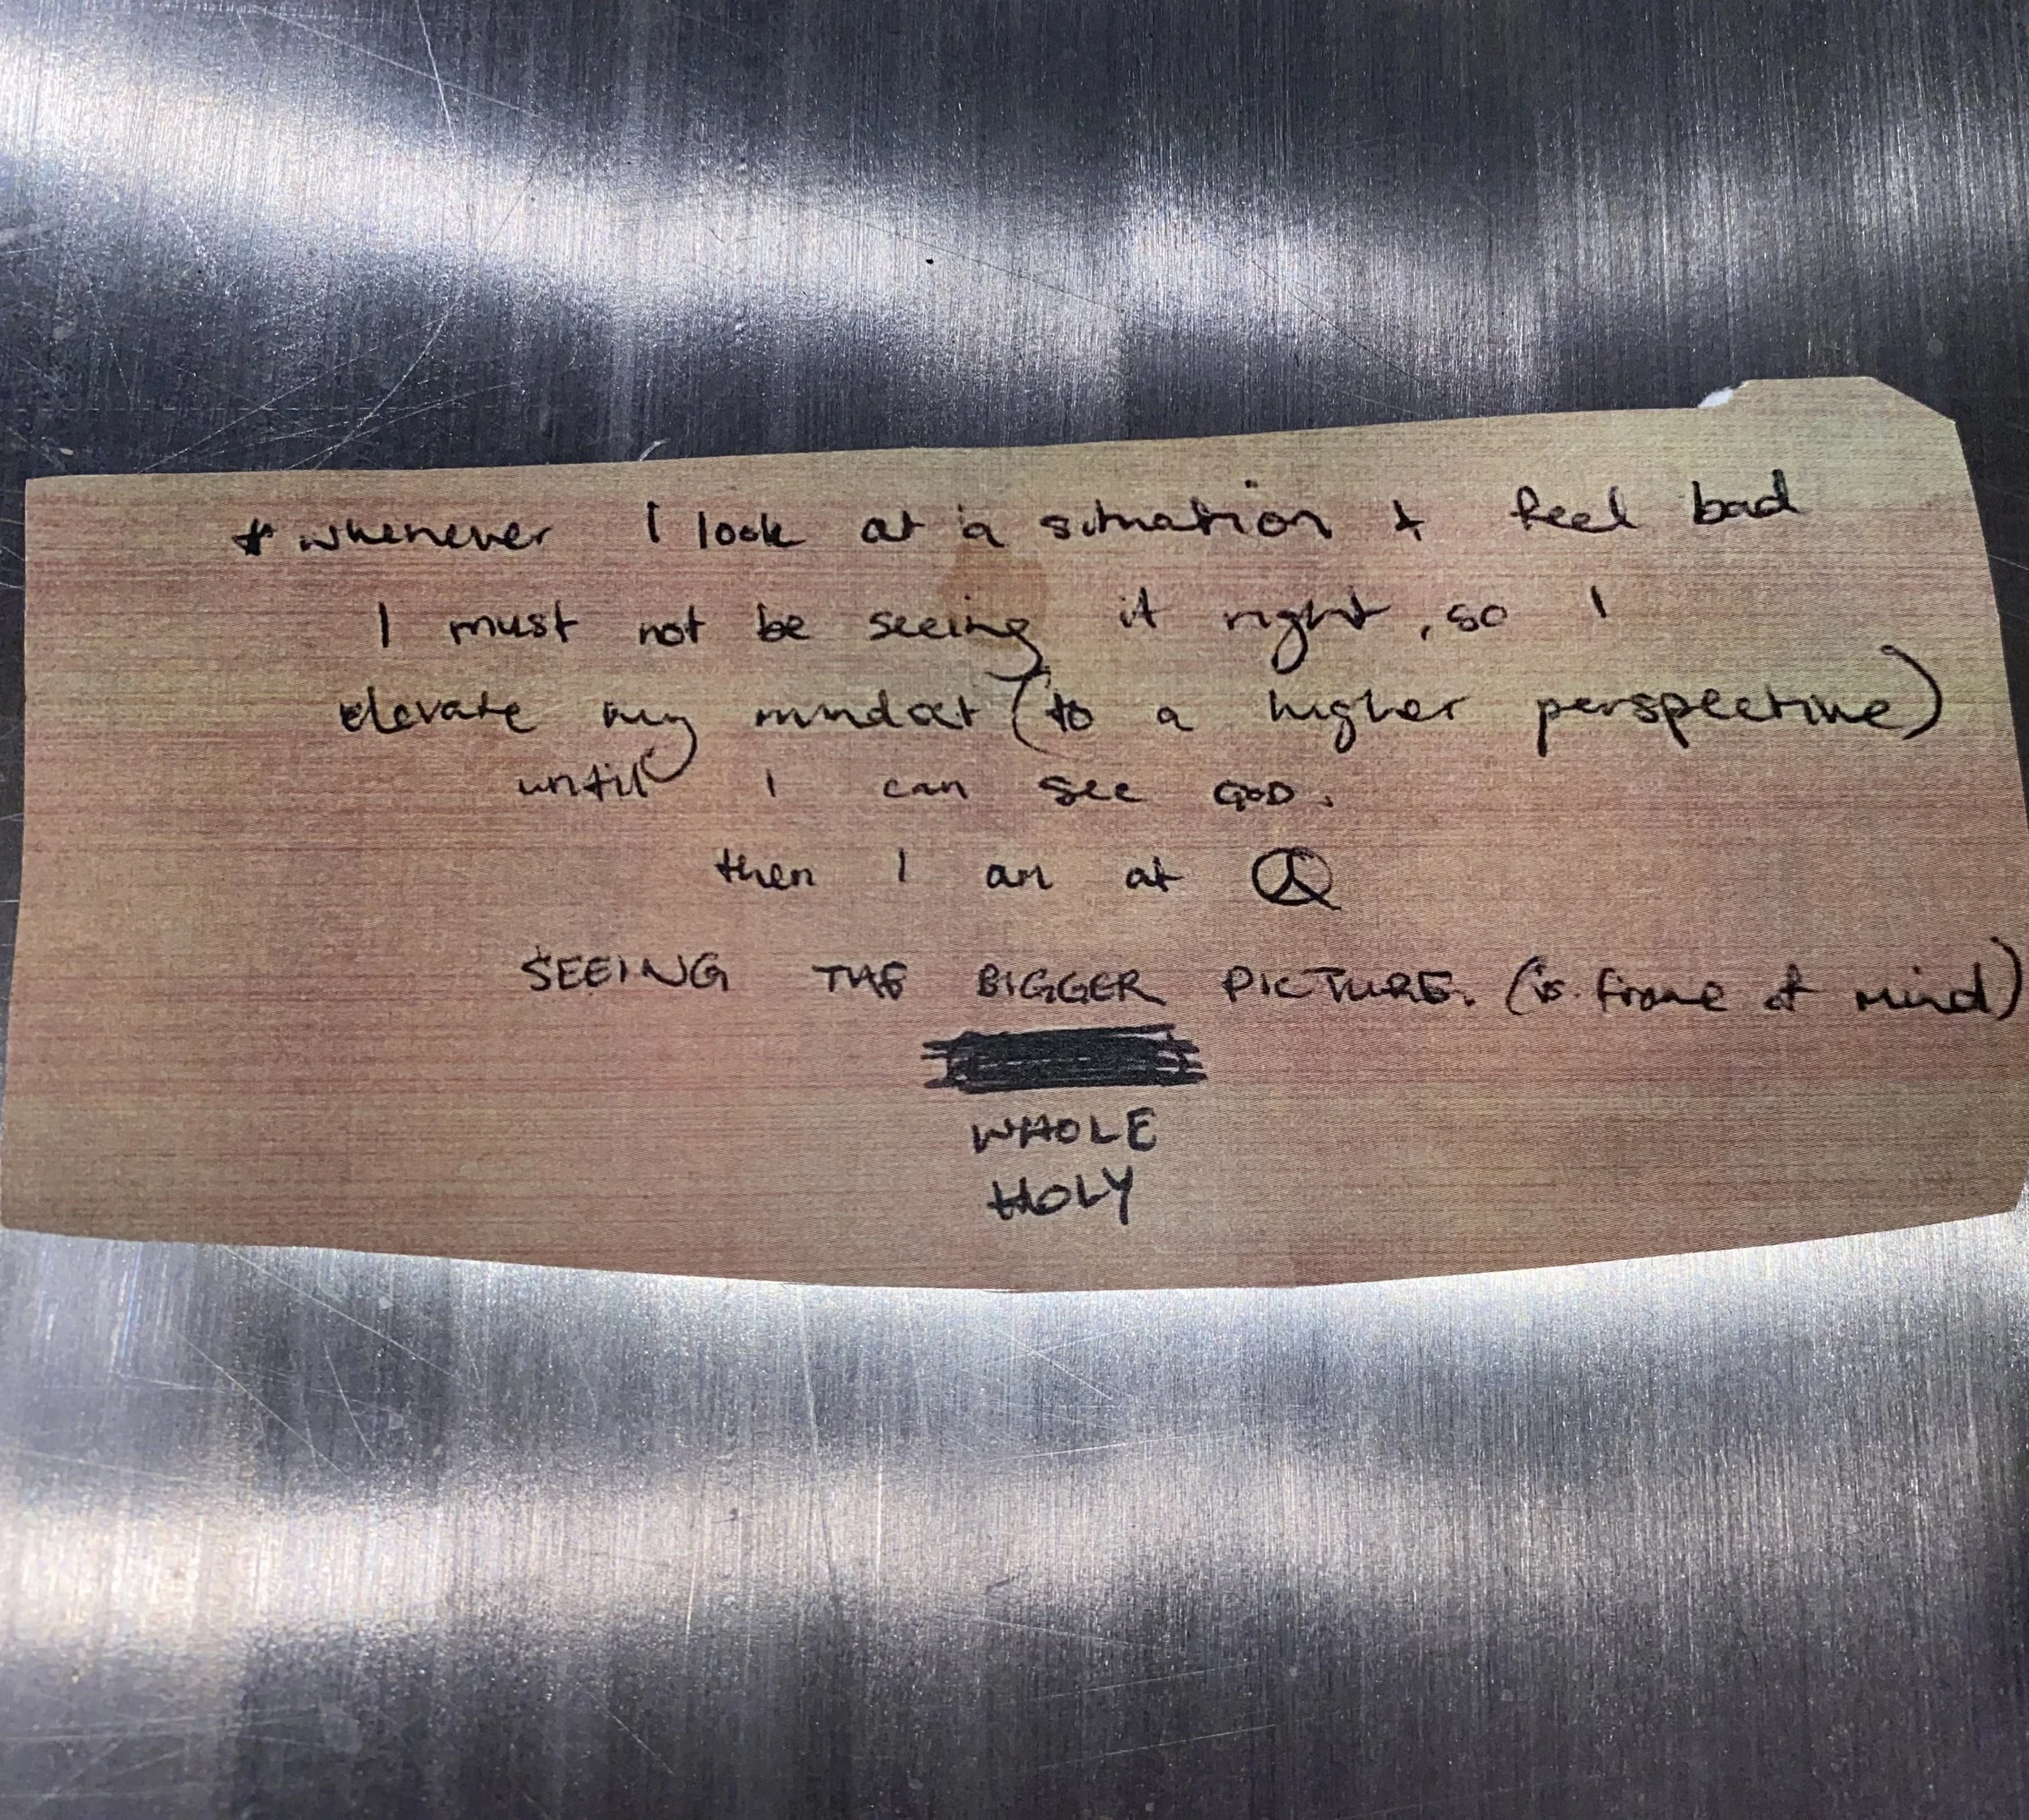 * whenever I look at a situation + feel bad
I must not be seeing it right, so I
elevate my mindset (to a higher perspective)
until I can see GOD.
then I am at ☮
SEEING THE BIGGER PICTURE. (is frame of mind)
WHOLE
HOLY